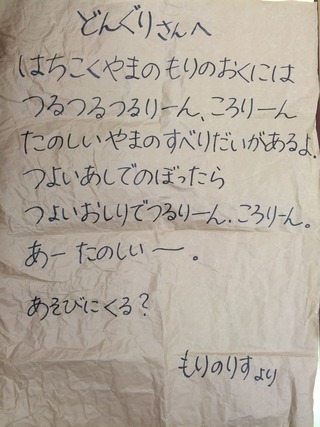 どんぐりさんへ
はちこくやまのもりのおくには
つるつるつるりーん、ころりーん
たのしいやまのすべりだいがあるよ.
つよいあしでのぼったら
つよいおしりでつるりーん.ころりーん。
あー たのしいー。
あそびにくる?
もりのりすより